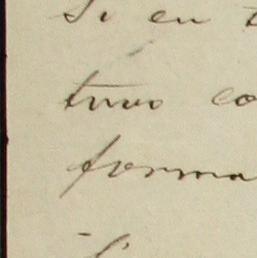 Si en
tuvo co
forma